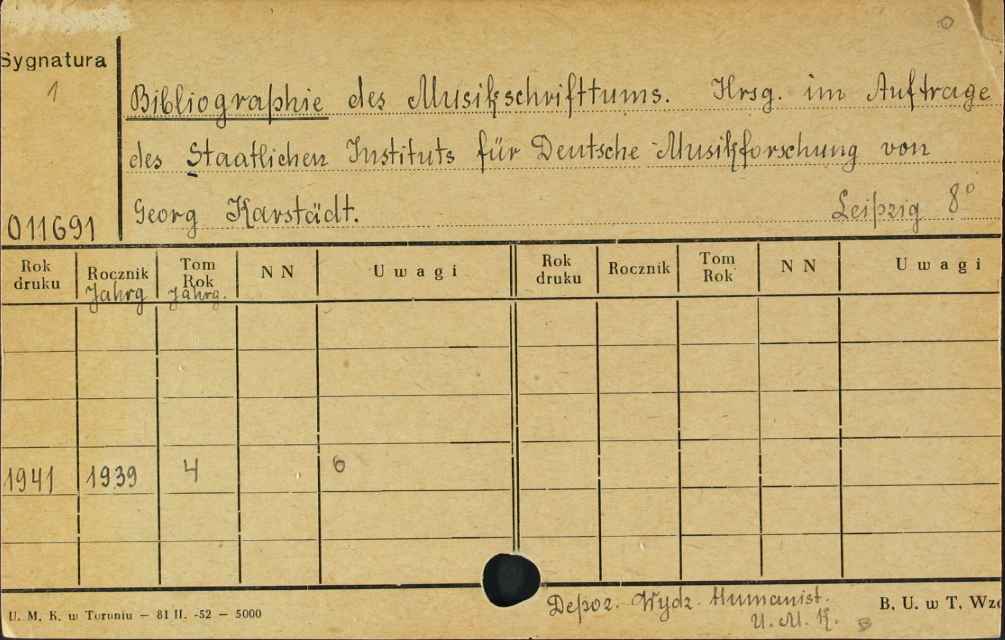 Sygnatura
1
Bibliographie des Musikschrifttums. Hrsg. im Auftrage
des Staatlichen Instituts für Deutsche Musikforschung von
Georg Karstädt. Leipzig 8°
011691
Rok druku Rocznik Jahrg Tom Rok Jahrg. NN Uwagi Rok druku Rocznik Tom Rok NN Uwagi
1941 1939 4 6
U. M. K. w Toruniu — 81 II. -52 — 5000
Depoz. Wydz. Humanist.
U. M. K. B
B. U. w T.